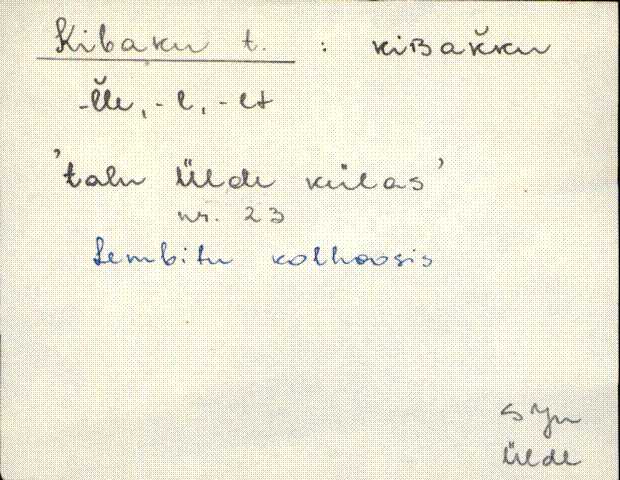 Kibaku t. : kiʙak̆ku
-l̆le, -l, -lt
'talu Ülde külas'
nr. 23
Lembitu kolhoosis
SJn
Ülde